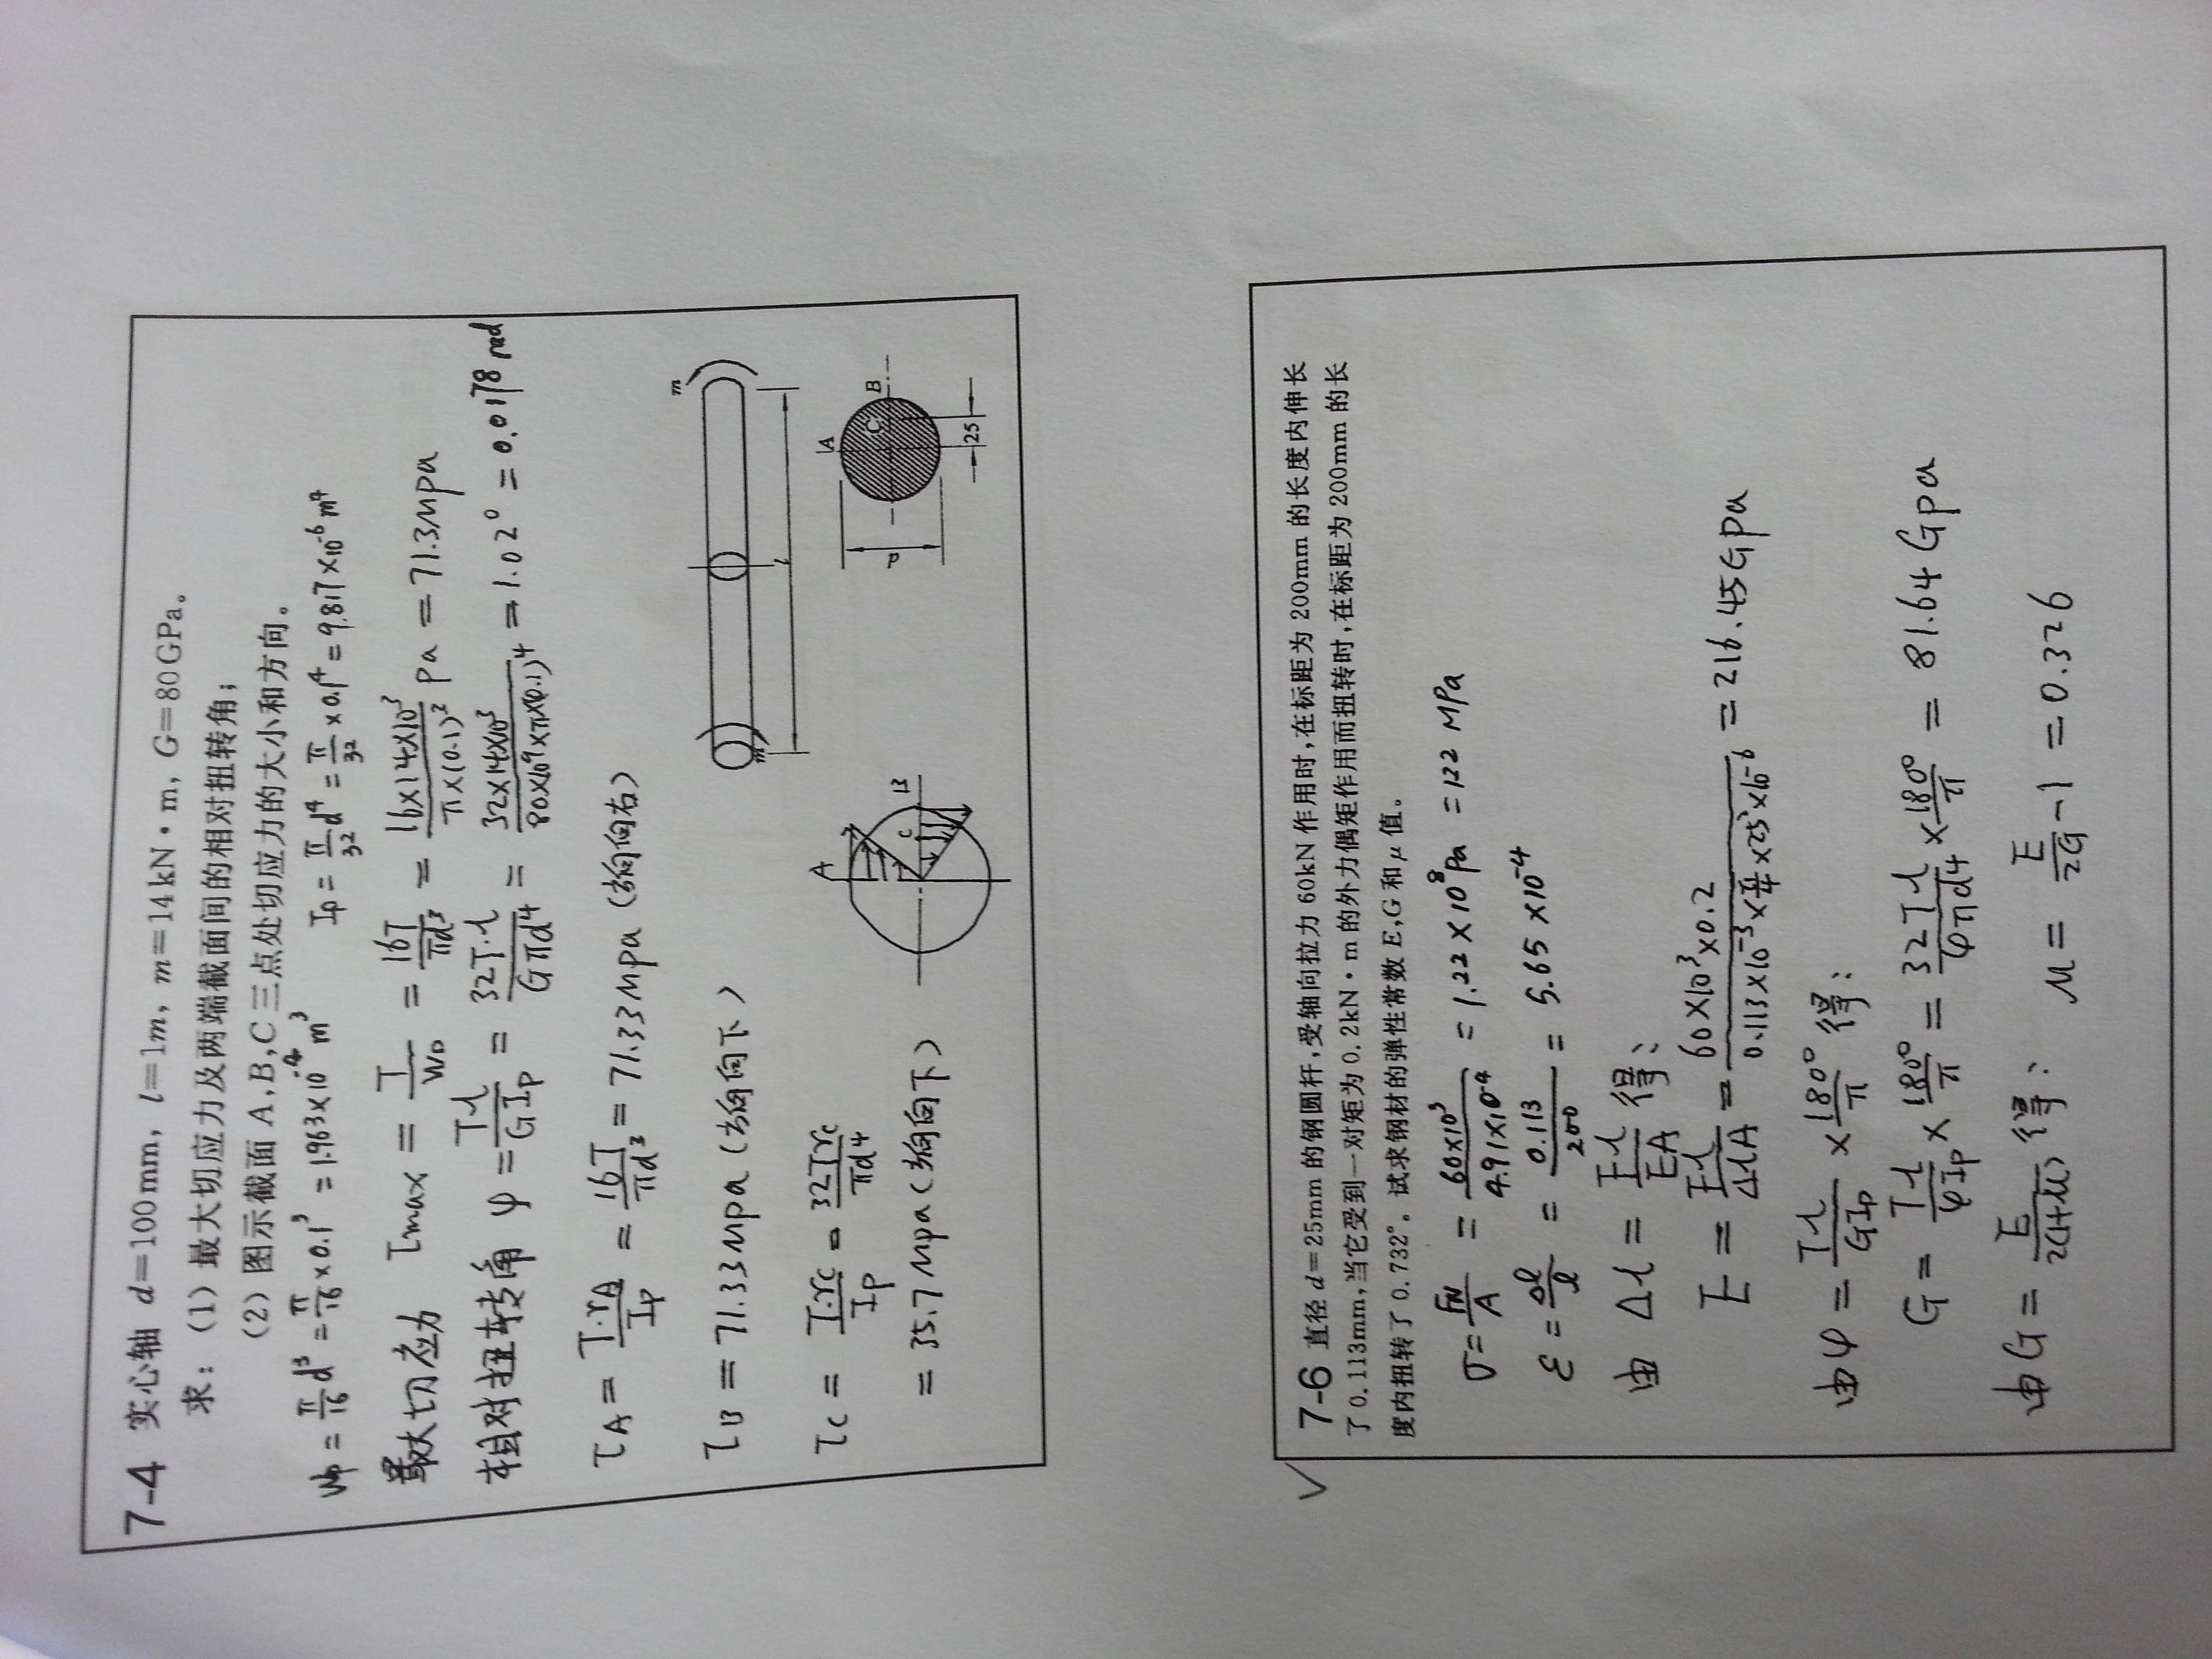 7-4 实心轴 d=100mm, l=1m, m=14kN·m, G=80GPa。
求:(1)最大切应力及两端截面间的相对扭转角;
(2)图示截面 A,B,C 三点处切应力的大小和方向。
Wp = π/16 d³ = π/16 × 0.1³ = 1.963×10⁻⁴ m³ Ip = π/32 d⁴ = π/32 × 0.1⁴ = 9.817×10⁻⁶ m⁴
最大切应力 τmax = T/Wp = 16T/πd³ = 16×14×10³/π×(0.1)³ Pa = 71.3Mpa
相对扭转角 φ = T·l/GIp = 32T·l/Gπd⁴ = 32×14×10³/80×10⁹×π×(0.1)⁴ = 1.02° = 0.0178 rad
τA = T·rA/Ip = 16T/πd³ = 71.33Mpa (方向向右)
τB = 71.33Mpa (方向向下)
τC = T·rc/Ip = 32Trc/πd⁴
= 35.7Mpa (方向向下)
A
B
C
m
m
l
A
B
C
d
25
7-6 直径 d=25mm 的钢圆杆,受轴向拉力 60kN 作用时,在标距为 200mm 的长度内伸长
了 0.113mm,当它受到一对矩为 0.2kN·m 的外力偶矩作用而扭转时,在标距为 200mm 的长
度内扭转了 0.732°。试求钢材的弹性常数 E,G 和 μ 值。
σ = FN/A = 60×10³/4.91×10⁻⁴ = 1.22×10⁸Pa = 122 MPa
ε = Δl/l = 0.113/200 = 5.65×10⁻⁴
由 Δl = Fl/EA 得:
E = Fl/ΔlA = 60×10³×0.2/0.113×10⁻³×π/4×25²×10⁻⁶ = 216.45Gpa
由 φ = Tl/GIp × 180°/π 得:
G = Tl/φIp × 180°/π = 32Tl/φπd⁴ × 180°/π = 81.64Gpa
由 G = E/2(1+μ) 得: μ = E/2G - 1 = 0.326